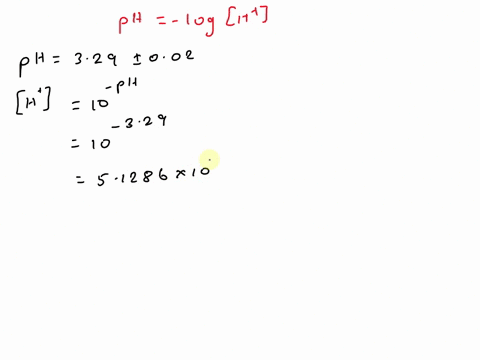 pH = -log [H⁺]
pH = 3.29 ± 0.02
[H⁺] = 10^-pH
= 10^-3.29
= 5.1286 × 10